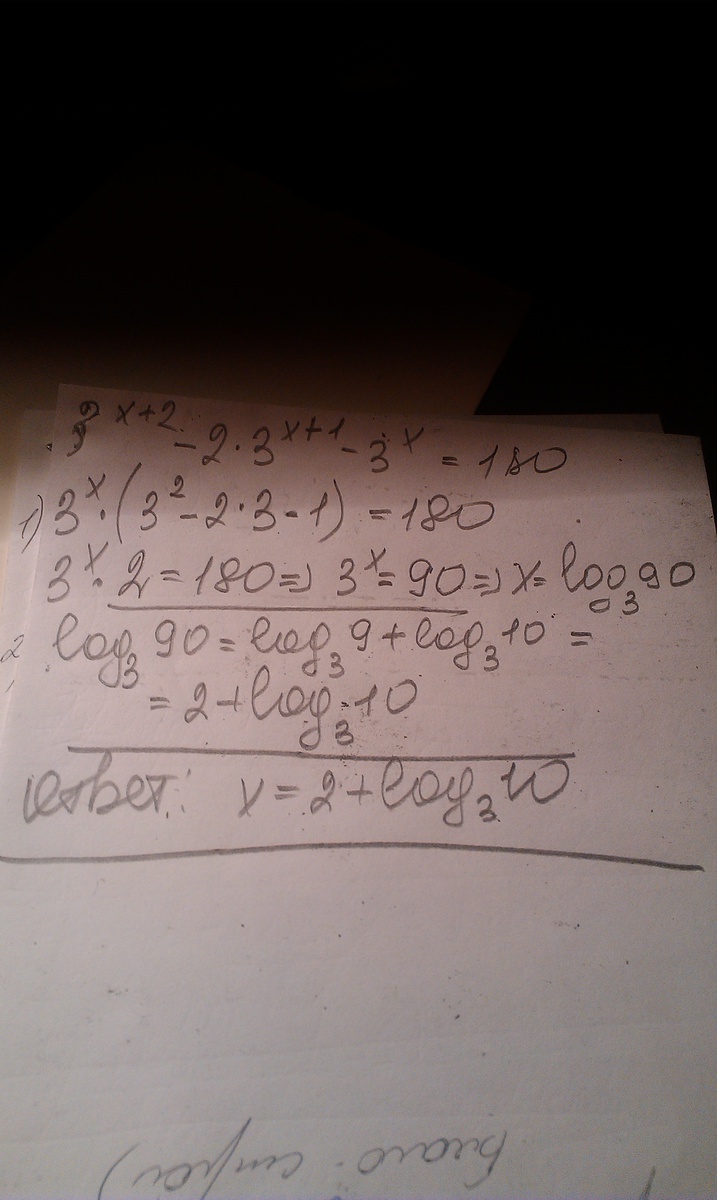 3^{x+2} - 2·3^{x+1} - 3^x = 180
1) 3^x·(3^2 - 2·3 - 1) = 180
3^x·2 = 180 => 3^x = 90 => x = log_3 90
2 log_3 90 = log_3 9 + log_3 10 =
= 2 + log_3 10
Ответ: x = 2 + log_3 10